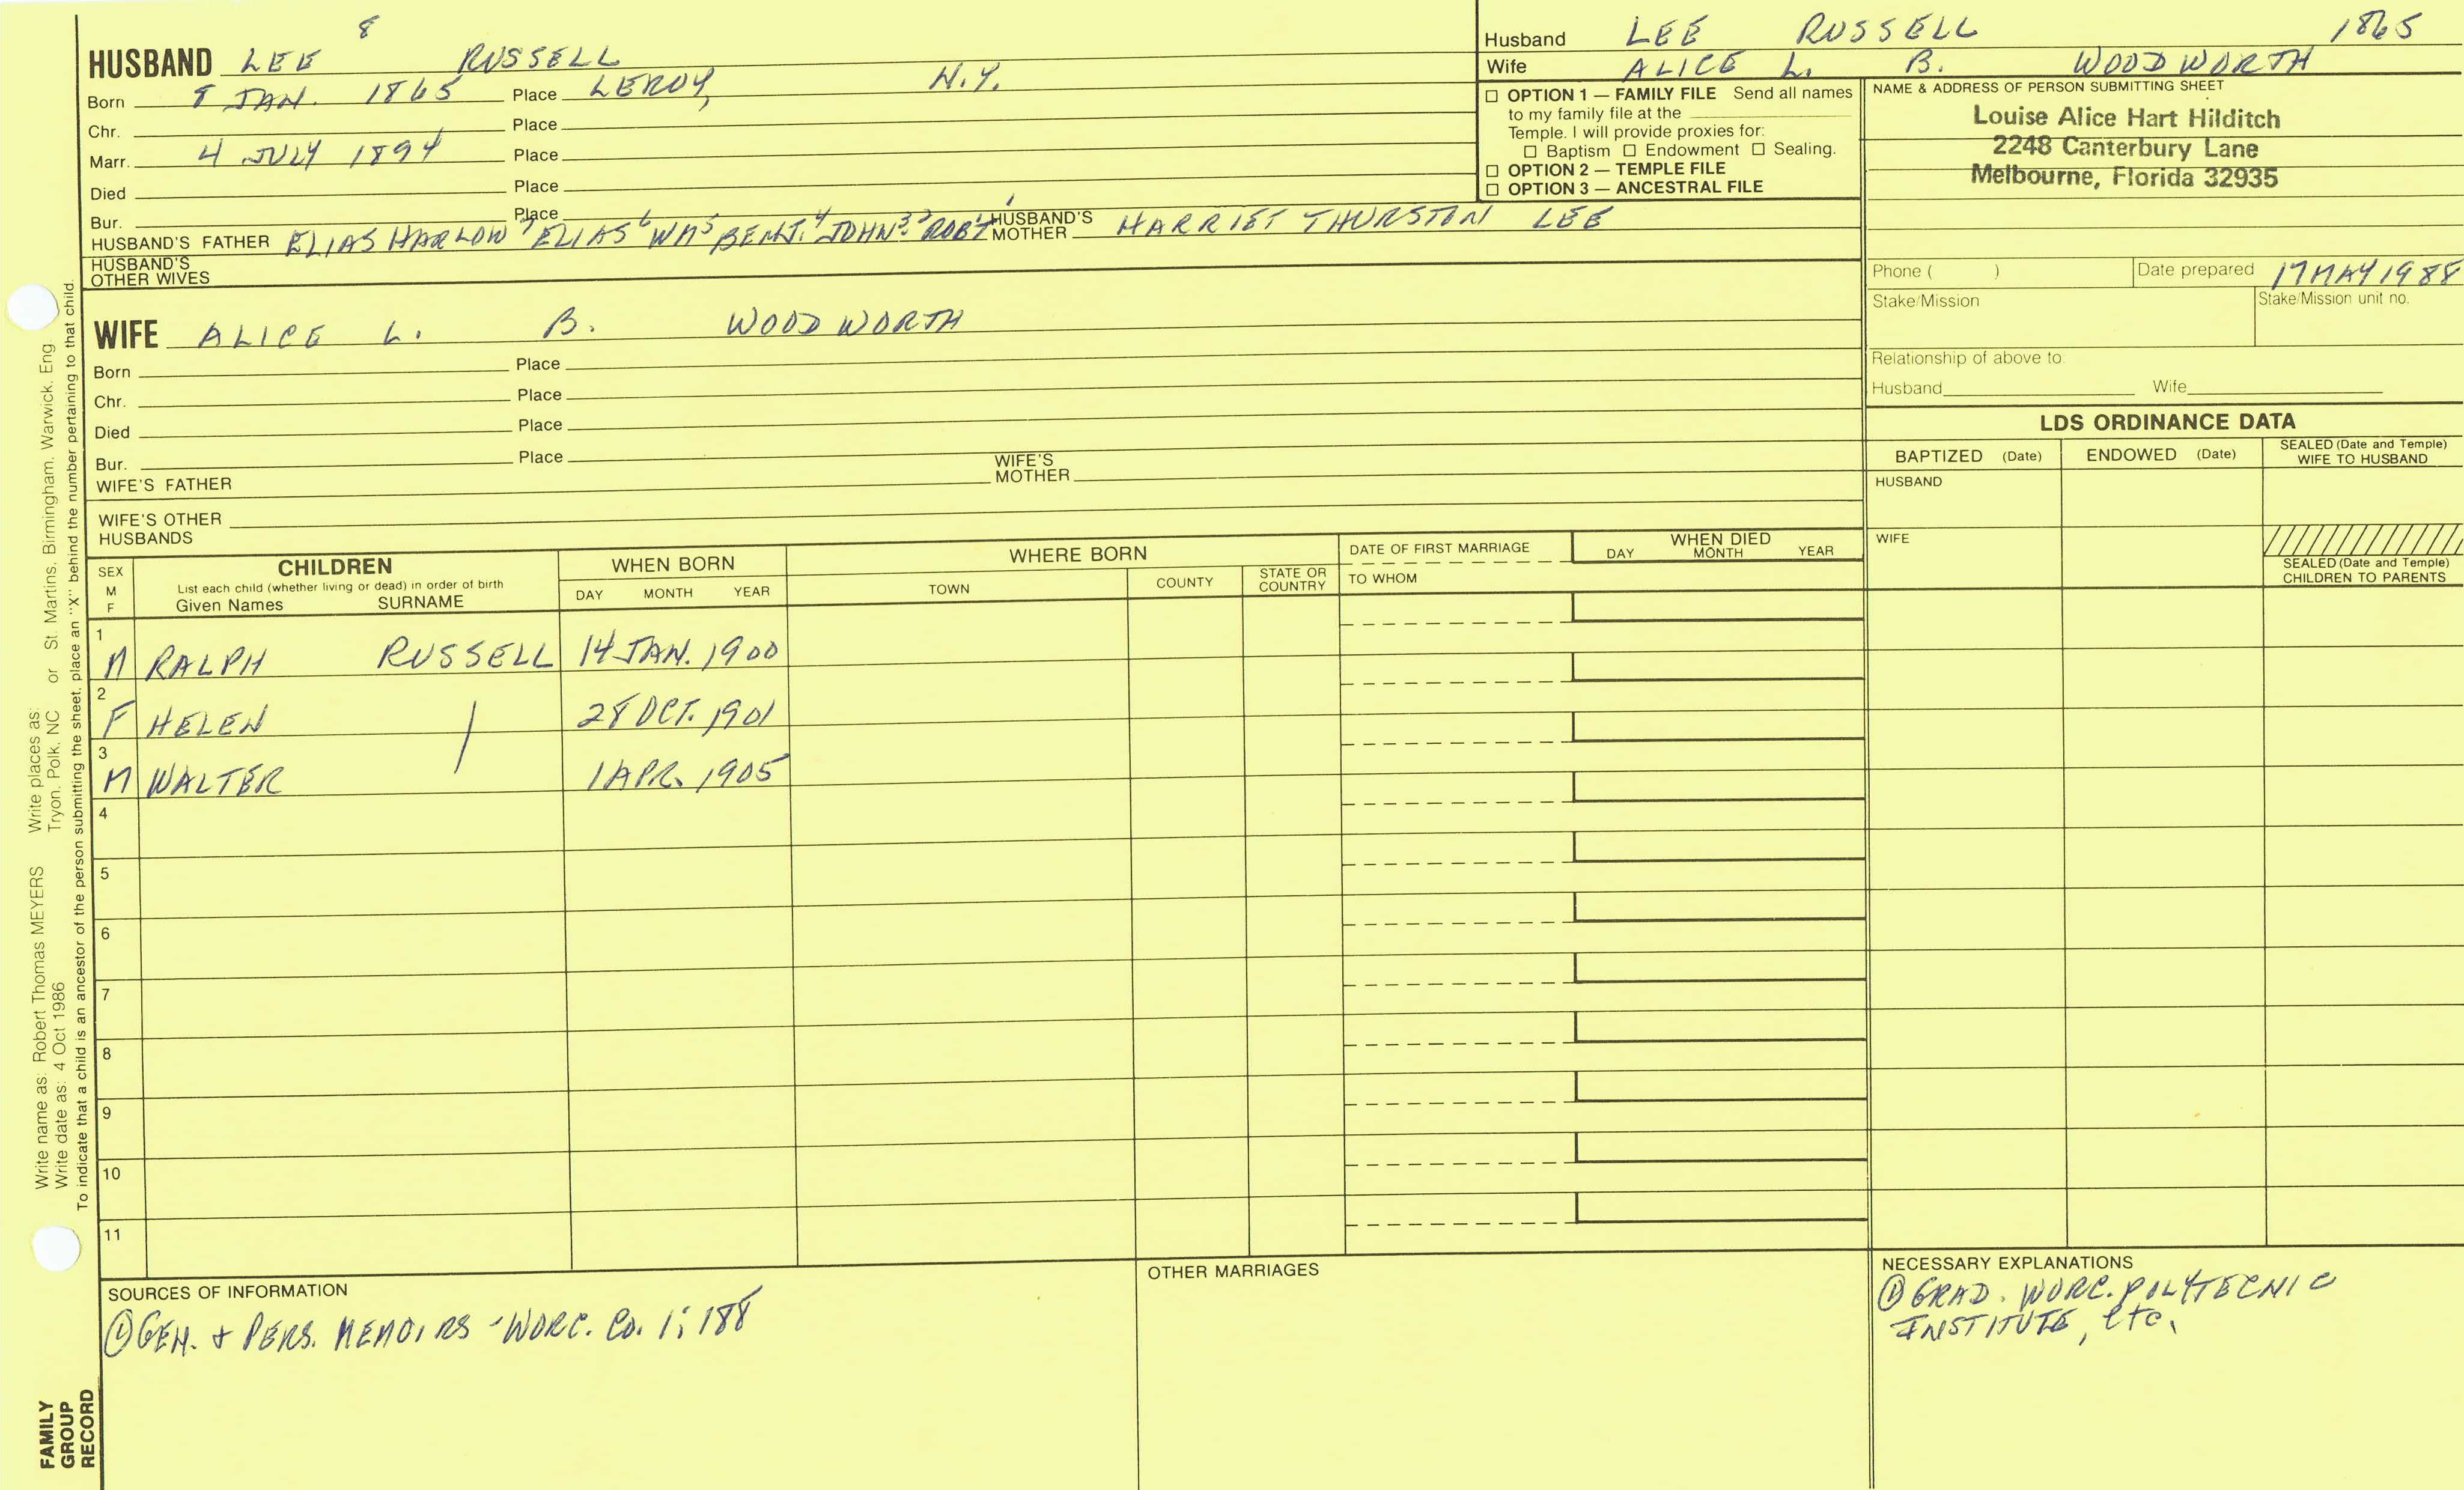 8
HUSBAND LEE RUSSELL
Born 8 JAN. 1865 Place LEROY, N.Y.
Chr. Place
Marr. 4 JULY 1894 Place
Died Place
Bur. Place
HUSBAND'S FATHER ELIAS HARLOW 7 ELIAS 6 WM 5 BENJ. 4 JOHN 3 2 ROBT 1 HUSBAND'S MOTHER HARRIET THURSTON LEE
HUSBAND'S OTHER WIVES
WIFE ALICE L. B. WOODWORTH
Born Place
Chr. Place
Died Place
Bur. Place
WIFE'S FATHER WIFE'S MOTHER
WIFE'S OTHER HUSBANDS
Husband LEE RUSSELL 1865
Wife ALICE L. B. WOODWORTH
☐ OPTION 1 — FAMILY FILE Send all names
to my family file at the
Temple. I will provide proxies for:
☐ Baptism ☐ Endowment ☐ Sealing.
☐ OPTION 2 — TEMPLE FILE
☐ OPTION 3 — ANCESTRAL FILE
NAME & ADDRESS OF PERSON SUBMITTING SHEET
Louise Alice Hart Hilditch
2248 Canterbury Lane
Melbourne, Florida 32935
Phone ( ) Date prepared 17 MAY 1988
Stake/Mission Stake/Mission unit no.
Relationship of above to:
Husband Wife
LDS ORDINANCE DATA
BAPTIZED (Date) ENDOWED (Date) SEALED (Date and Temple) WIFE TO HUSBAND
HUSBAND
WIFE
SEALED (Date and Temple) CHILDREN TO PARENTS
SEX M F
CHILDREN
List each child (whether living or dead) in order of birth
Given Names SURNAME
WHEN BORN
DAY MONTH YEAR
WHERE BORN
TOWN COUNTY STATE OR COUNTRY
DATE OF FIRST MARRIAGE
TO WHOM
WHEN DIED
DAY MONTH YEAR
1 M RALPH RUSSELL 14 JAN. 1900
2 F HELEN 28 OCT. 1901
3 M WALTER 1 APR. 1905
4
5
6
7
8
9
10
11
SOURCES OF INFORMATION
① GEN. + PERS. MEMOIRS - WORC. Co. 1; 188
OTHER MARRIAGES
NECESSARY EXPLANATIONS
① GRAD. WORC. POLYTECNIC
INSTITUTE, etc.
Write name as: Robert Thomas MEYERS Write places as: Tryon, Polk, NC or St. Martins, Birmingham, Warwick, Eng
Write date as: 4 Oct 1986
To indicate that a child is an ancestor of the person submitting the sheet, place an "X" behind the number pertaining to that child.
FAMILY
GROUP
RECORD